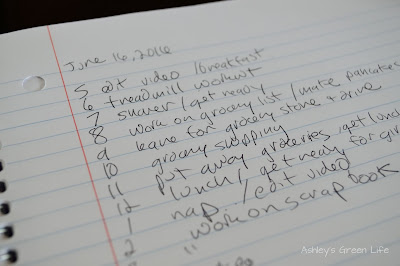 June 16, 2016
5 edit video / breakfast
6 treadmill workout
7 shower / get ready
8 work on grocery list / make pancakes
9 leave for grocery store + drive
10 grocery shopping
11 put away groceries / get lunch
12 lunch / get ready for
1 nap / edit video
2 "work on scrapbook
3
Ashley's Green Life